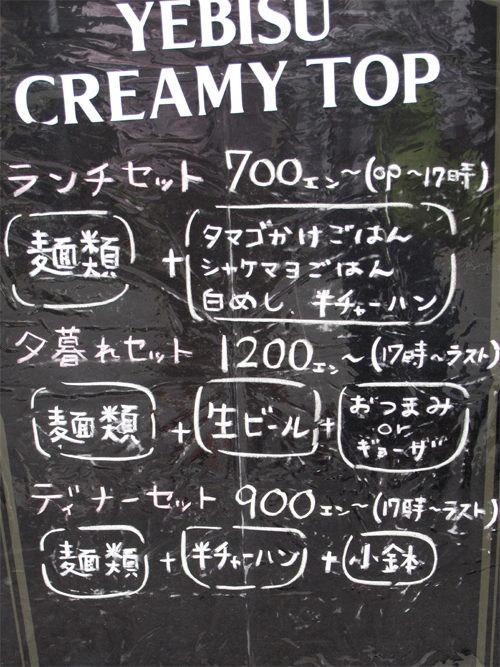 YEBISU
CREAMY TOP
ランチセット 700エン〜(op〜17時)
麺類 + タマゴかけごはん
シャケマヨごはん
白めし、半チャーハン
夕暮れセット 1200エン〜(17時〜ラスト)
麺類 + 生ビール + おつまみ
or
ギョーザ
ディナーセット 900エン〜(17時〜ラスト)
麺類 + 半チャーハン + 小鉢